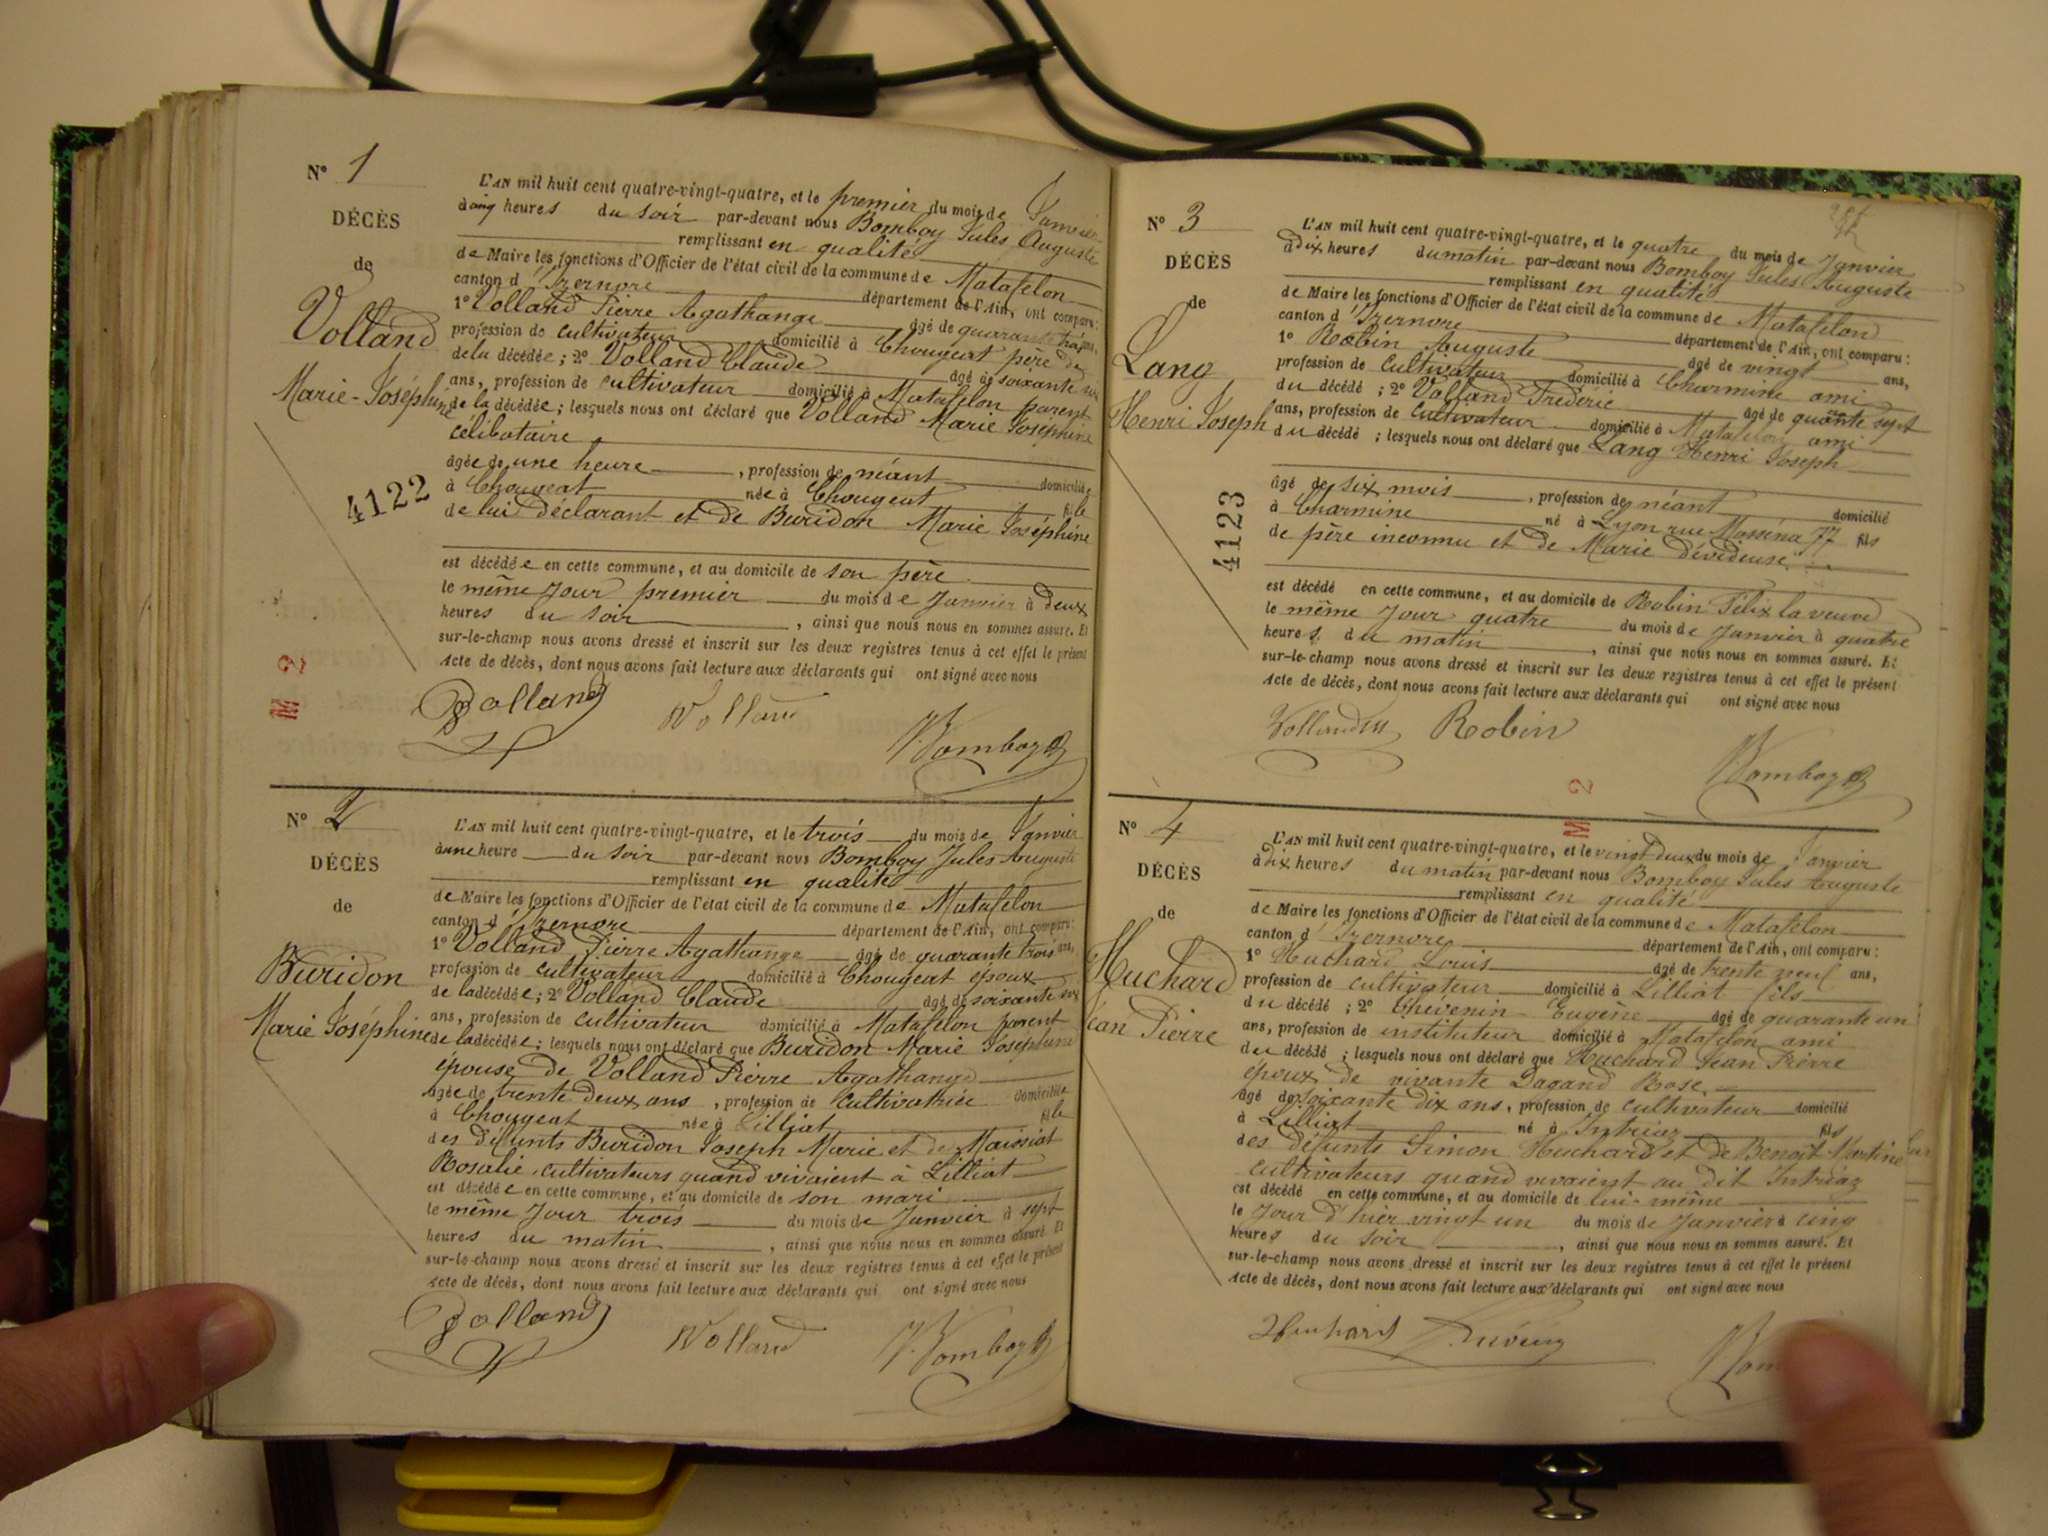 N° 1
DÉCÈS
de
Volland
Marie-Joséphine
4122
M 2
L'AN mil huit cent quatre-vingt-quatre, et le premier du mois de Janvier
à cinq heures du soir par-devant nous Bomboy Jules Auguste
remplissant en qualité
de Maire les fonctions d'Officier de l'état civil de la commune de Matafelon
canton d'Izernore département de l'Ain, ont comparu :
1° Volland Pierre Agathange âgé de quarante trois ans,
profession de cultivateur domicilié à Chougeat père de
de la décédée ; 2° Volland Claude âgé de soixante six
ans, profession de cultivateur domicilié à Matafelon parent
de la décédée ; lesquels nous ont déclaré que Volland Marie Joséphine
célibataire
âgée de une heure, profession de néant domiciliée
à Chougeat née à Chougeat fille
de lui déclarant et de Buridon Marie Joséphine
est décédée en cette commune, et au domicile de son père
le même jour premier du mois de Janvier à deux
heures du soir, ainsi que nous nous en sommes assuré. Et
sur-le-champ nous avons dressé et inscrit sur les deux registres tenus à cet effet le présent
acte de décès, dont nous avons fait lecture aux déclarants qui ont signé avec nous
Volland Volland J. Bomboy
N° 2
DÉCÈS
de
Buridon
Marie Joséphine
L'AN mil huit cent quatre-vingt-quatre, et le trois du mois de Janvier
à une heure du soir par-devant nous Bomboy Jules Auguste
remplissant en qualité
de Maire les fonctions d'Officier de l'état civil de la commune de Matafelon
canton d'Izernore département de l'Ain, ont comparu :
1° Volland Pierre Agathange âgé de quarante trois ans,
profession de cultivateur domicilié à Chougeat époux
de la décédée ; 2° Volland Claude âgé de soixante six
ans, profession de cultivateur domicilié à Matafelon parent
de la décédée ; lesquels nous ont déclaré que Buridon Marie Joséphine
épouse de Volland Pierre Agathange
âgée de trente deux ans, profession de cultivatrice domiciliée
à Chougeat née à Lilliat fille
des défunts Buridon Joseph Marie et de Maissiat
Rosalie, cultivateurs quand vivaient à Lilliat
est décédée en cette commune, et au domicile de son mari
le même jour trois du mois de Janvier à sept
heures du matin, ainsi que nous nous en sommes assuré. Et
sur-le-champ nous avons dressé et inscrit sur les deux registres tenus à cet effet le présent
acte de décès, dont nous avons fait lecture aux déclarants qui ont signé avec nous
Volland Volland J. Bomboy
N° 3
DÉCÈS
de
Lang
Henri Joseph
4123
L'AN mil huit cent quatre-vingt-quatre, et le quatre du mois de Janvier
à dix heures du matin par-devant nous Bomboy Jules Auguste
remplissant en qualité
de Maire les fonctions d'Officier de l'état civil de la commune de Matafelon
canton d'Izernore département de l'Ain, ont comparu :
1° Robin Auguste âgé de vingt ans,
profession de cultivateur domicilié à Charmine ami
du décédé ; 2° Volland Fréderic âgé de quarante sept
ans, profession de cultivateur domicilié à Matafelon ami
du décédé ; lesquels nous ont déclaré que Lang Henri Joseph
âgé de six mois, profession de néant domicilié
à Charmine né à Lyon rue Masséna 77 fils
de père inconnu et de Marie dévideuse
est décédé en cette commune, et au domicile de Robin Félix la veuve
le même jour quatre du mois de Janvier à quatre
heures du matin, ainsi que nous nous en sommes assuré. Et
sur-le-champ nous avons dressé et inscrit sur les deux registres tenus à cet effet le présent
acte de décès, dont nous avons fait lecture aux déclarants qui ont signé avec nous
Volland Robin J. Bomboy
M 2
N° 4
DÉCÈS
de
Huchard
Jean Pierre
L'AN mil huit cent quatre-vingt-quatre, et le vingt deux du mois de Janvier
à dix heures du matin par-devant nous Bomboy Jules Auguste
remplissant en qualité
de Maire les fonctions d'Officier de l'état civil de la commune de Matafelon
canton d'Izernore département de l'Ain, ont comparu :
1° Huchard Louis âgé de trente neuf ans,
profession de cultivateur domicilié à Lilliat fils
du décédé ; 2° Thévenin Eugène âgé de quarante un
ans, profession de instituteur domicilié à Matafelon ami
du décédé ; lesquels nous ont déclaré que Huchard Jean Pierre
époux de vivante Dagand Rose
âgé de soixante dix ans, profession de cultivateur domicilié
à Lilliat né à fils
des défunts Simon Huchard et de Benoît Martine
cultivateurs quand vivaient au dit Intriaz
est décédé en cette commune, et au domicile de lui-même
le jour d'hier vingt un du mois de Janvier à cinq
heures du soir, ainsi que nous nous en sommes assuré. Et
sur-le-champ nous avons dressé et inscrit sur les deux registres tenus à cet effet le présent
acte de décès, dont nous avons fait lecture aux déclarants qui ont signé avec nous
Huchard